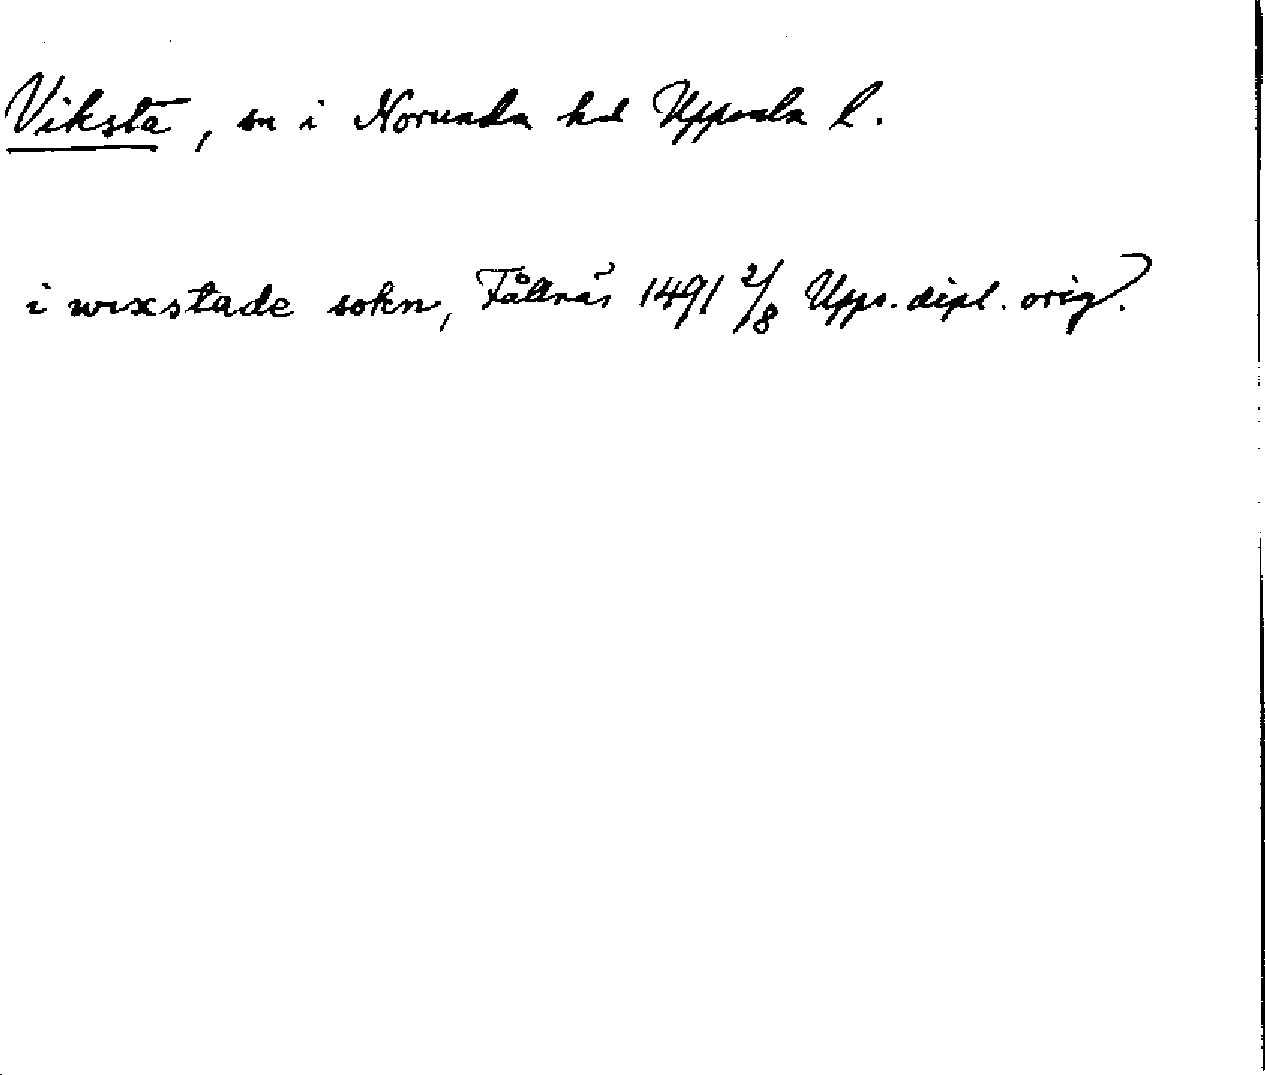 Viksta, sn i Norunda hd Uppsala l.
i wixstade sokn, Fållnäs 1491 2/8 Upps. dipl. orig.